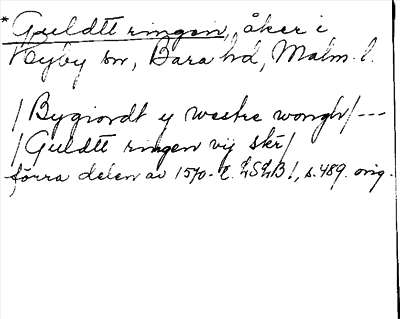 *Guldtt ringen, åker i
Hyby sn, Bara hd, Malm. l.
/Bygiordt y westre wongh/---
/Guldtt ringen vij skr/
förra delen av 1570-t. LSLB1, s. 489. orig.